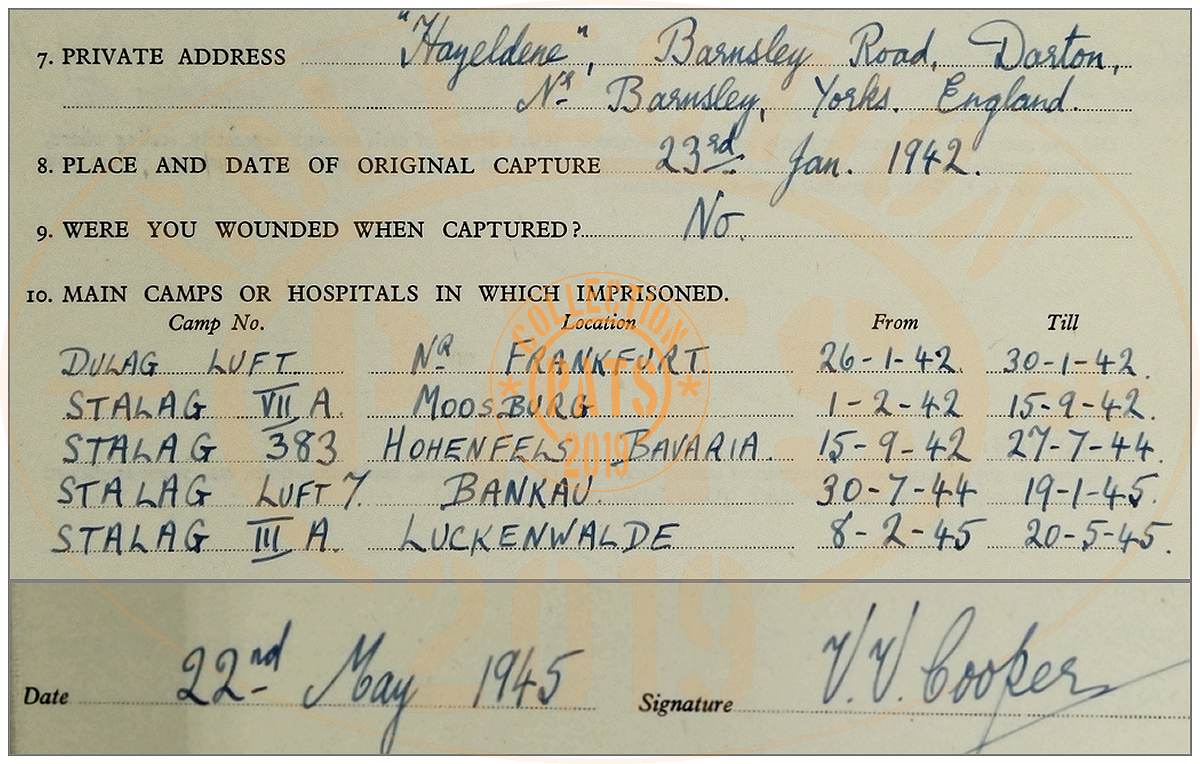 7. PRIVATE ADDRESS "Hazeldene", Barnsley Road, Darton,
Nr Barnsley, Yorks. England.
8. PLACE AND DATE OF ORIGINAL CAPTURE 23rd. Jan. 1942.
9. WERE YOU WOUNDED WHEN CAPTURED? No.
10. MAIN CAMPS OR HOSPITALS IN WHICH IMPRISONED.
Camp No. Location From Till
DULAG LUFT. NR FRANKFURT. 26-1-42. 30-1-42.
STALAG VII A. MOOSBURG 1-2-42 15-9-42.
STALAG 383 HOHENFELS BAVARIA. 15-9-42 27-7-44.
STALAG LUFT 7. BANKAU 30-7-44 19-1-45.
STALAG III A. LUCKENWALDE 8-2-45 20-5-45.
COLLECTION
PATS
2019
Date 22nd May 1945 Signature V.V. Cooper